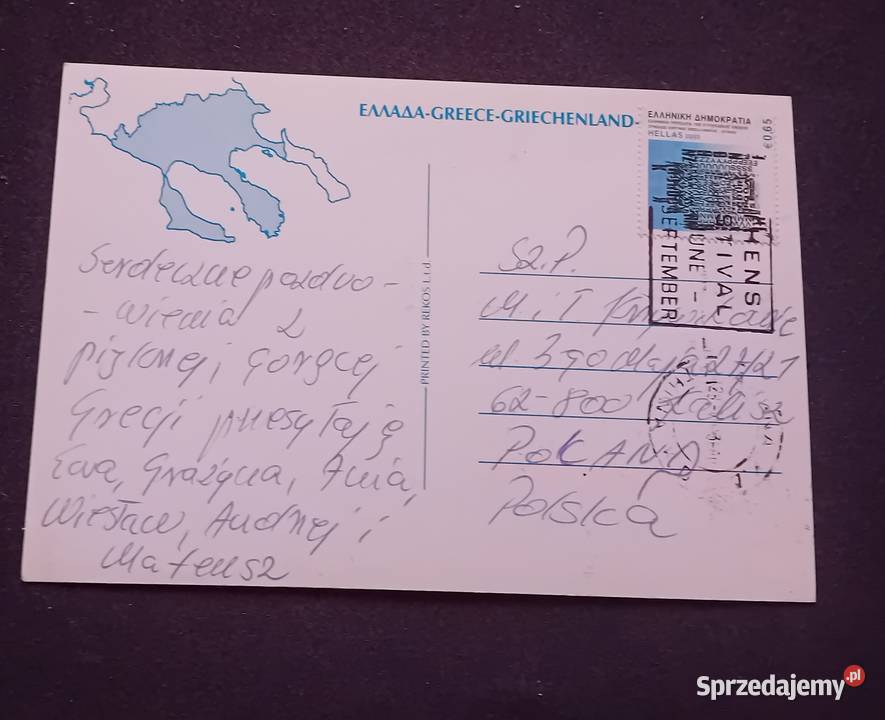 ΕΛΛΑΔΑ-GREECE-GRIECHENLAND-
ΕΛΛΗΝΙΚΗ ΔΗΜΟΚΡΑΤΙΑ
HELLAS
€0,65
HENS
TIVAL
UNE -
SEPTEMBER
PRINTED BY REKOS Ltd.
Serdeczne pozdro-
- wienia z
pięknej, gorącej
Grecji przesyłają
Ewa, Grażyna, Ania,
Wiesław, Andrzej i
Mateusz
Sz.P.
M. i T.
ul. 3
62-800 Kalisz
POLAND
Polska
Sprzedajemy.pl